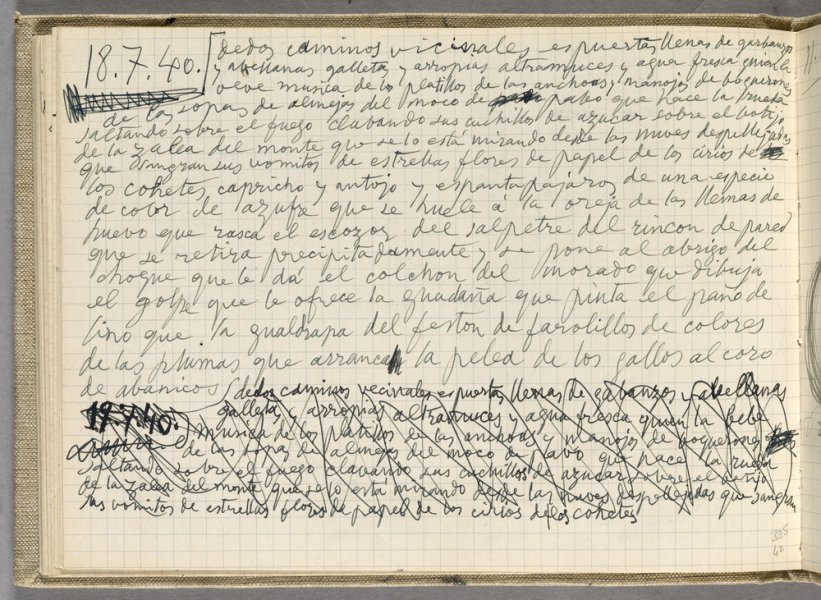 18.7.40. de dos caminos vicinales espuertas llenas de garbanzos
y abellanas galletas y arropias altramuces y agua fresca quien la
veve musica de los platillos de las anchoas y manojos de boquerones
de las sopas de almejas del moco de pabo que hace la rueda
saltando sobre el fuego clabando sus cuchillos de azucar sobre el botijo
de la zalea del monte que se lo está mirando desde las nuves despellejadas
que sangran sus vomitos de estrellas flores de papel de los cirios de
los cohetes capricho y antojo y espantapajaros de una especie
de color de azufre que se huele á la oreja de las llemas de
huevo que rasca el escozor del salpetre del rincon de pared
que se retira precipitadamente y se pone al abrigo del
choque que le dá el colchon del morado que dibuja
el golpe que le ofrece la guadaña que pinta el paño de
lino que la gualdrapa del feston de farolillos de colores
de las plumas que arranca la pelea de los gallos al coro
de abanicos
19.7.40. de dos caminos vecinales espuertas llenas de gabanzos y abellanas
galletas y arropias altramuces y agua fresca quien la bebe
musica de los platillos de las anchoas y manojos de boquerones
de las sopas de almejas del moco de pavo que hace la rueda
saltando sobre el fuego clavando sus cuchillos de azucar sobre el botijo
de la zalea del monte que se lo está mirando desde las nuves despellejadas que sangran
sus vomitos de estrellas flores de papel de los cirios de los cohetes